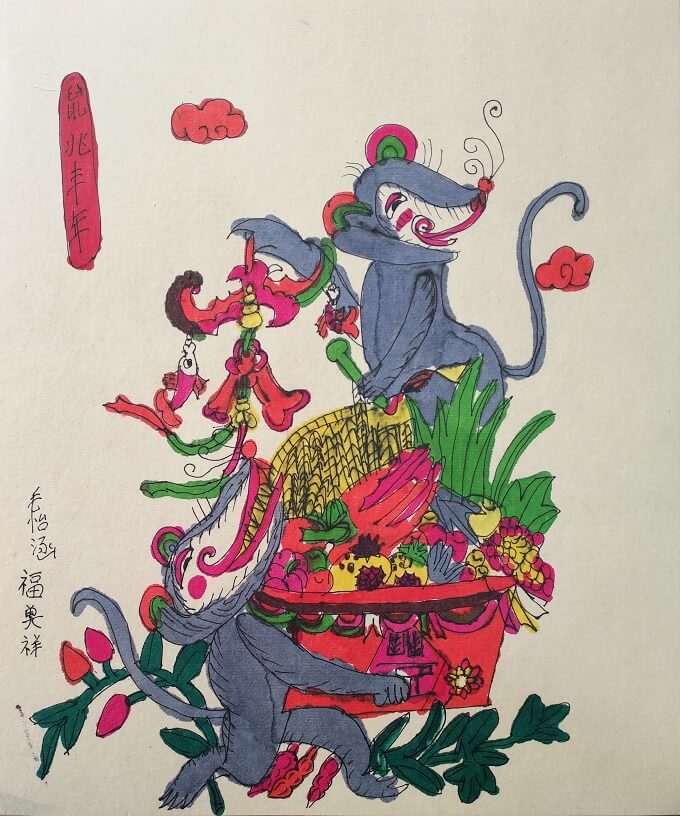 鼠兆丰年
怡涵
福祥